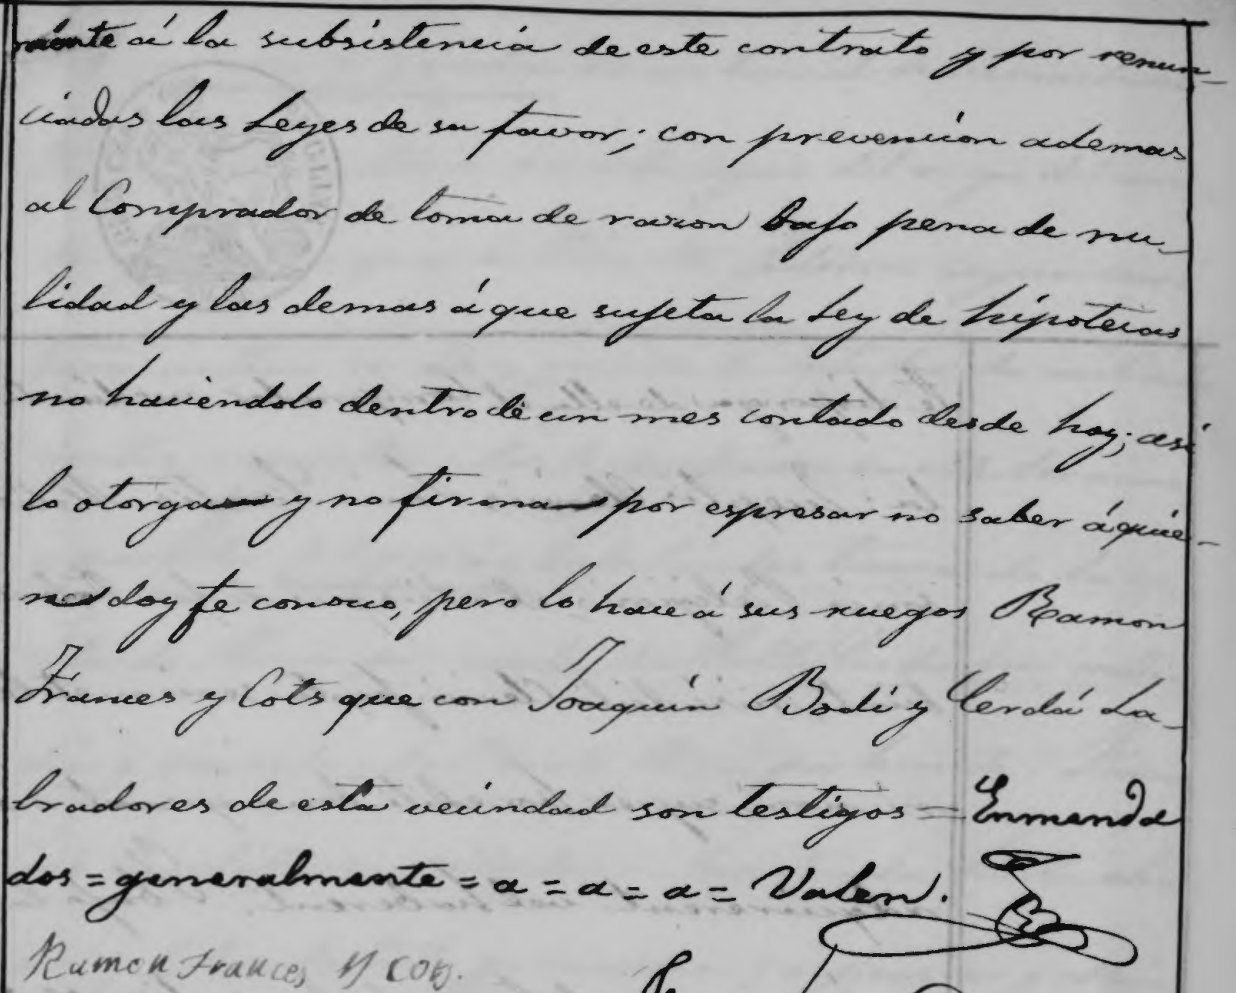 mente á la subsistencia de este contrato y por renun-
ciadas las Leyes de su favor; con prevencion ademas
al Comprador de toma de razon bajo pena de nu-
lidad y las demas á que sujeta la Ley de hipotecas
no haciendolo dentro de un mes contado desde hoy; asi
lo otorga y no firma por espresar no saber á quie-
nes doy fe conozco, pero lo hace á sus ruegos Ramon
Frances y Cots que con Joaquin Bodi y Cerdá La-
bradores de esta vecindad son testigos = Enmenda
dos = generalmente = a = a = a = Valen.
Ramon Frances y Cots.